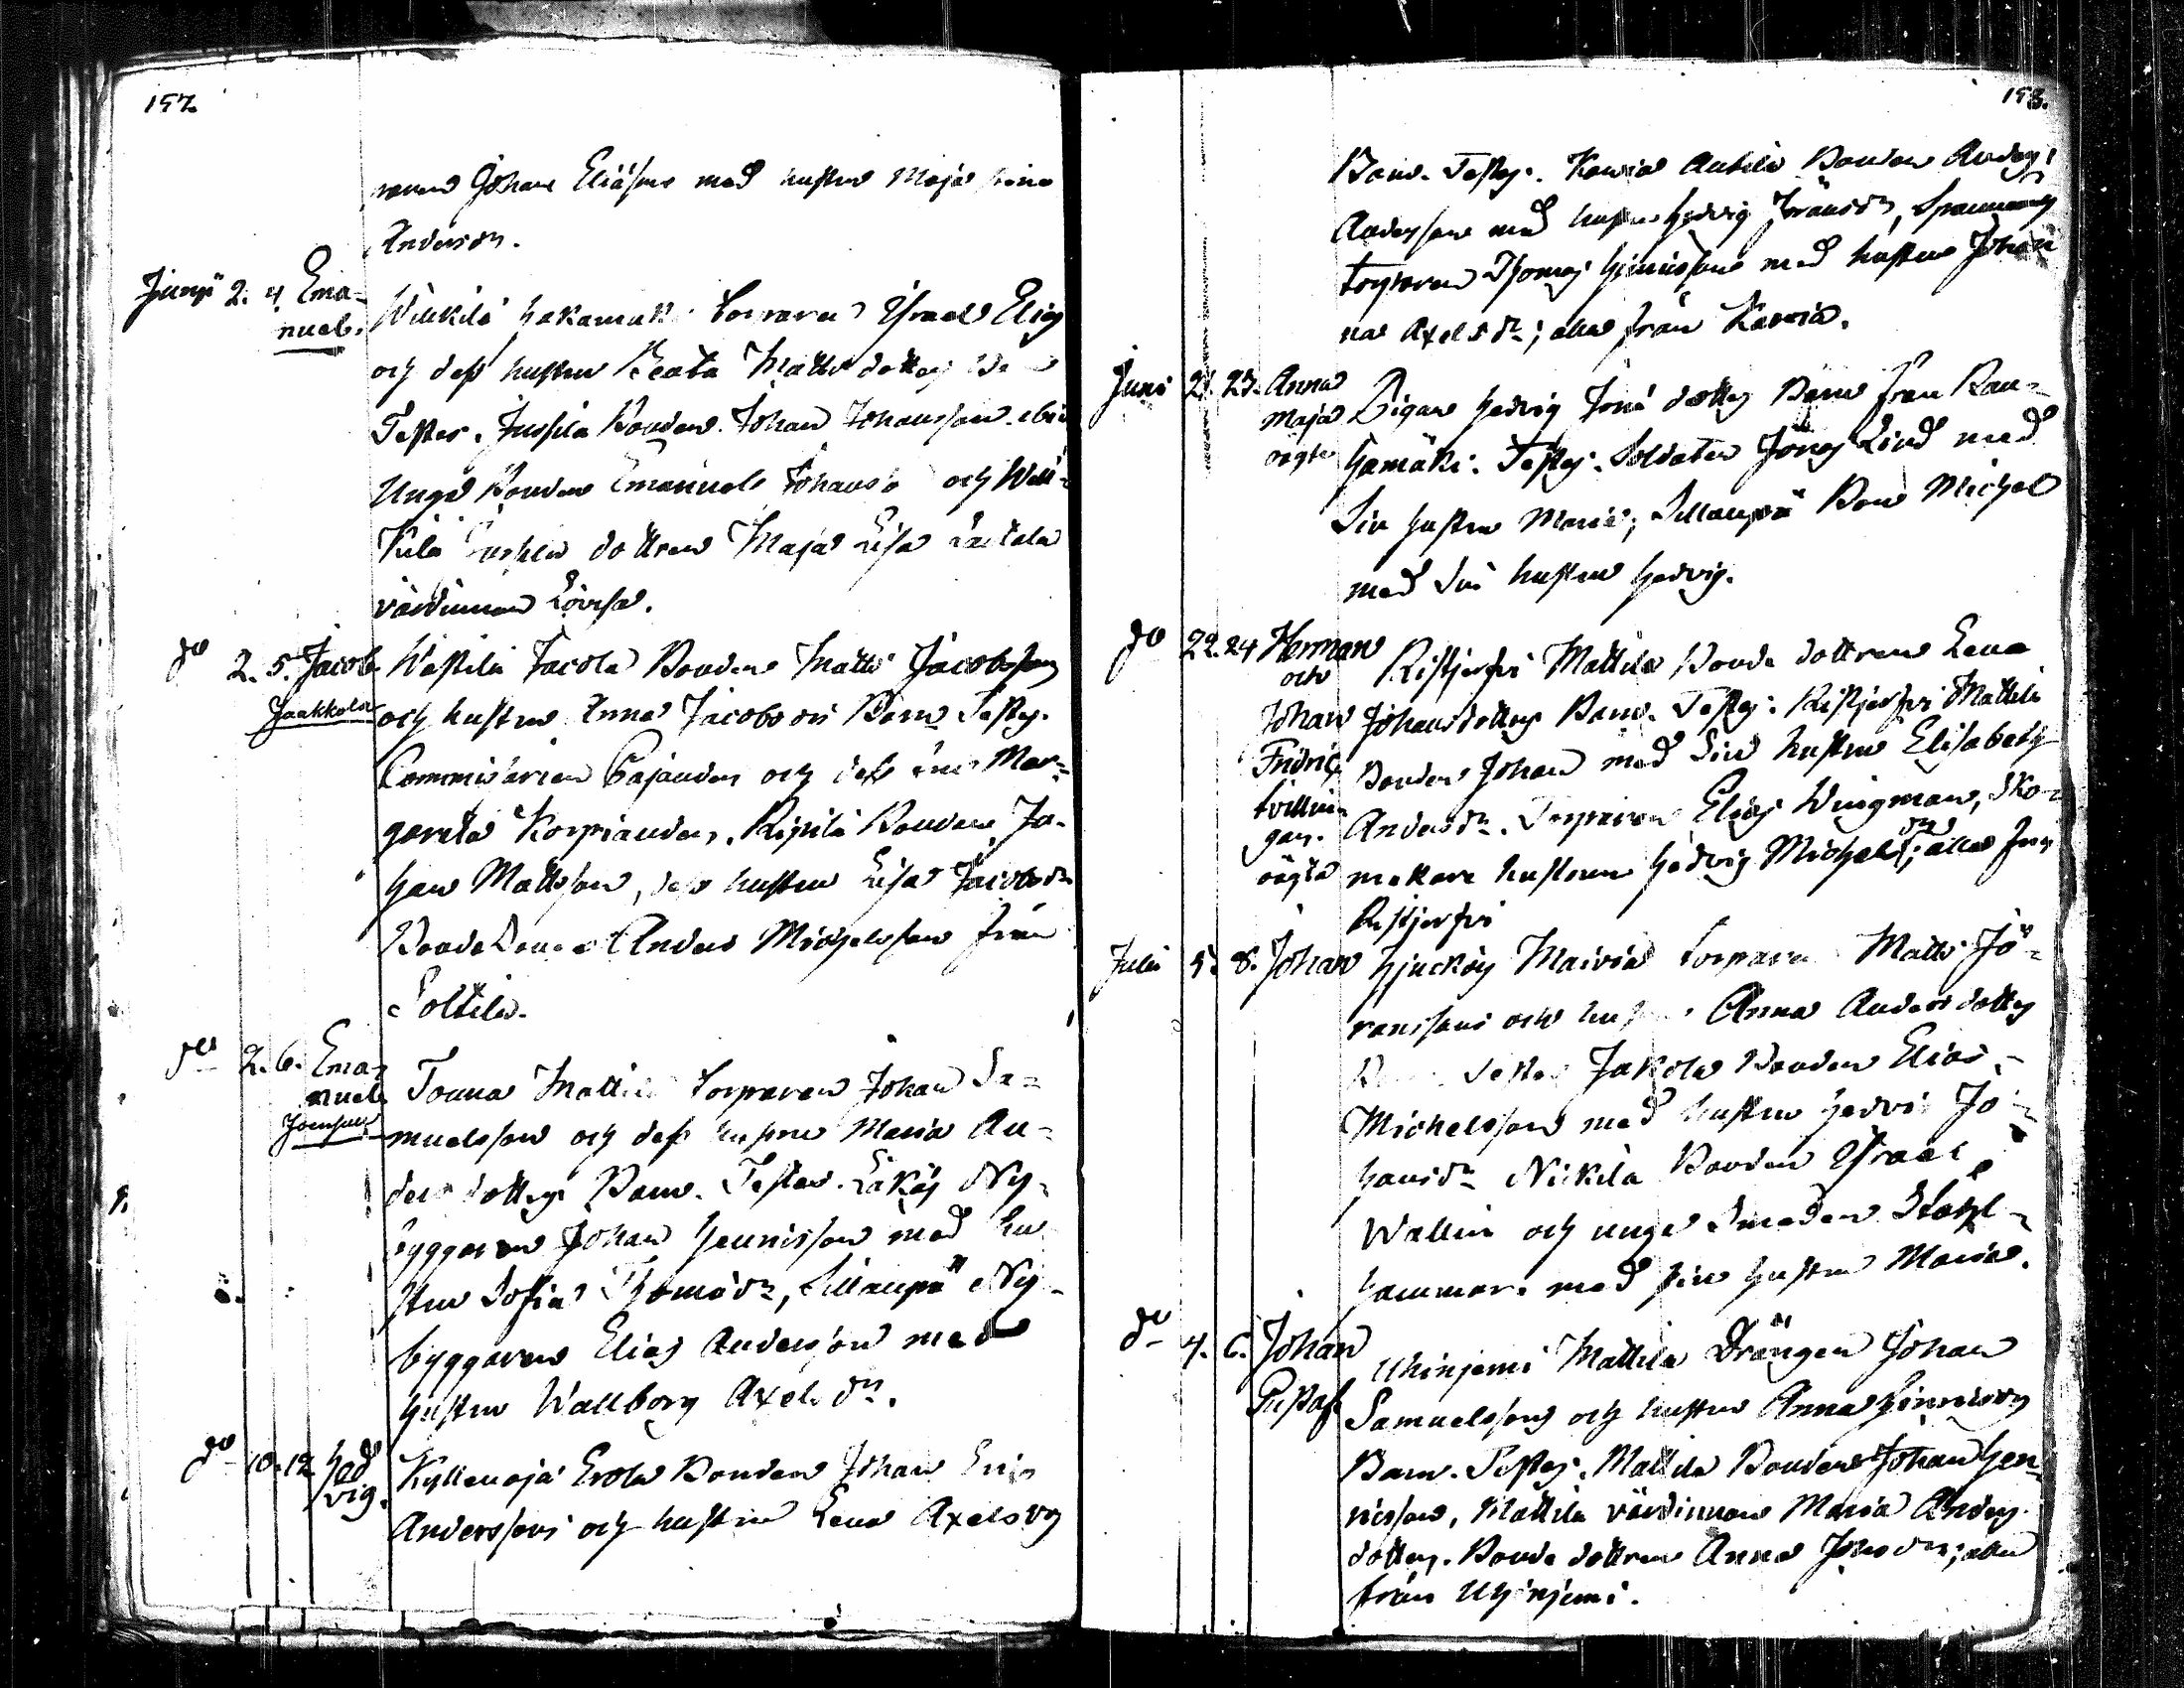 157.
raren Johan Eliasson med hustru Maja Lena
Andersdr.
Junii 2. 4. Ema-
nuel.
Wiukila Hakamäki Torparen Israel Elias
och dess hustru Beata Matts dotters
Testes. Jussila Bonden Johan Johansson
Unge Bonden Emanuel Johanss och Wiu-
kila dottren Maja Lisa Laitala
värdinnan Lovisa.
do 2. 5. Jacob
Jaakkola
Westilä Jacola Bonden Matts Jacobsson
och hustru Anna Jacobs dr Barn Testes.
Commissarien Cajander och dess Mar-
gareta Korpiander, Ripilä Bonden Jo-
han Mattsson, dess hustru Lisa Jacobsdr
Bonde Anders Michelsson från
Soltila.
do 2. 6. Ema-
nuel
Jonsuu
Tonna Mattila Torparen Johan Sa-
muelsson och dess hustru Maria An-
ders dotters Barn. Testes. Laköj Ny-
byggaren Johan Hennisson med hu-
stru Sofia Thomædr, Sillanpä Ny-
byggaren Elias Andersson med
hustru Wallborg Axels dr.
do 10. 12. Hed
vig.
Kyllenoja Erola Bonden Johan Eric
Andersson och hustru Lena Axels dr
158.
Barn. Testes. Kauvia Anttila Bonden Anders
Andersson med hustru Hedvig Jöransdr,
torparen Thomas Hinricsson med hustru Johan
na Axelsdr; alla från Kauvia.
Juni 21. 23. Anna
Maja
oägta
Pigan Hedvig Jons dotters Barn från Rau-
hamäki. Testes. Soldaten Jonas Lind med
Sin hustru Maria; Sillanpä Bon Michel
med Sin hustru Hedvig.
do 22. 24 Herman
och
Johan
Fridric
tvillin-
gar.
oägta
Ristjerfvi Mattila Bonde dottren Lena
Johansdotters Barn. Testes. Ristjerfvi Mattila
Bonden Johan med Sin hustru Elisabeth
Andersdr. Torparen Elias Wingman, sko-
makare hustrun Hedvig Michels dr; alla från
Ristjerfvi
Julii 5. 8. Johan
Hjucköj Maivia Torparen Matts Jö-
ransson och hustru Anna Anders dotters
Testes Jakola Bonden Elias
Michelsson med hustru Hedvi Jo-
hansdr Nickila Bonden Israel
Wallin och unge Smeden Stahl-
hammar med sin hustru Maria.
do 4. 6. Johan
Gustaf
Uhinjemi Mattila Drängen Johan
Samuelsson och hustru Anna Hinrics dr
Barn. Testes. Mattila Bonden Johan Hen-
nisson, Mattila värdinnan Maria Anders
dotter. Bonde dottren Anna Johsdr; alla
från Uhinjemi.